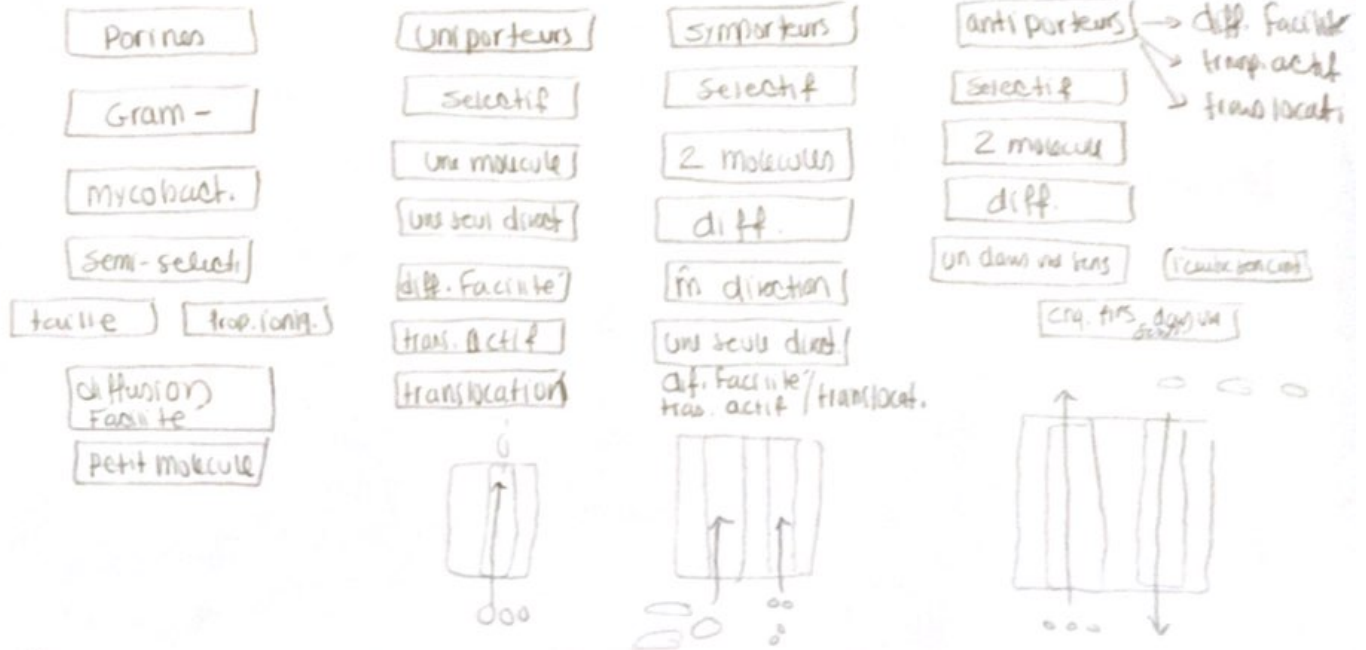 Porines
Gram -
mycobact.
Semi-selecti
taille
trop. ioniq.
diffusion
Facilité
petit molecule
Uniporteurs
Selectif
une molecule
une seul direct
diff. Facilité
trans. actif
translocation
Symporteurs
Selectif
2 molecules
diff.
m̂ direction
une seule direct.
dif. Facilité /
tras. actif / translocat.
antiporteurs → diff. Facilité
→ transp. actif
→ translocati
Selectif
2 molecule
diff.
un dans un sens